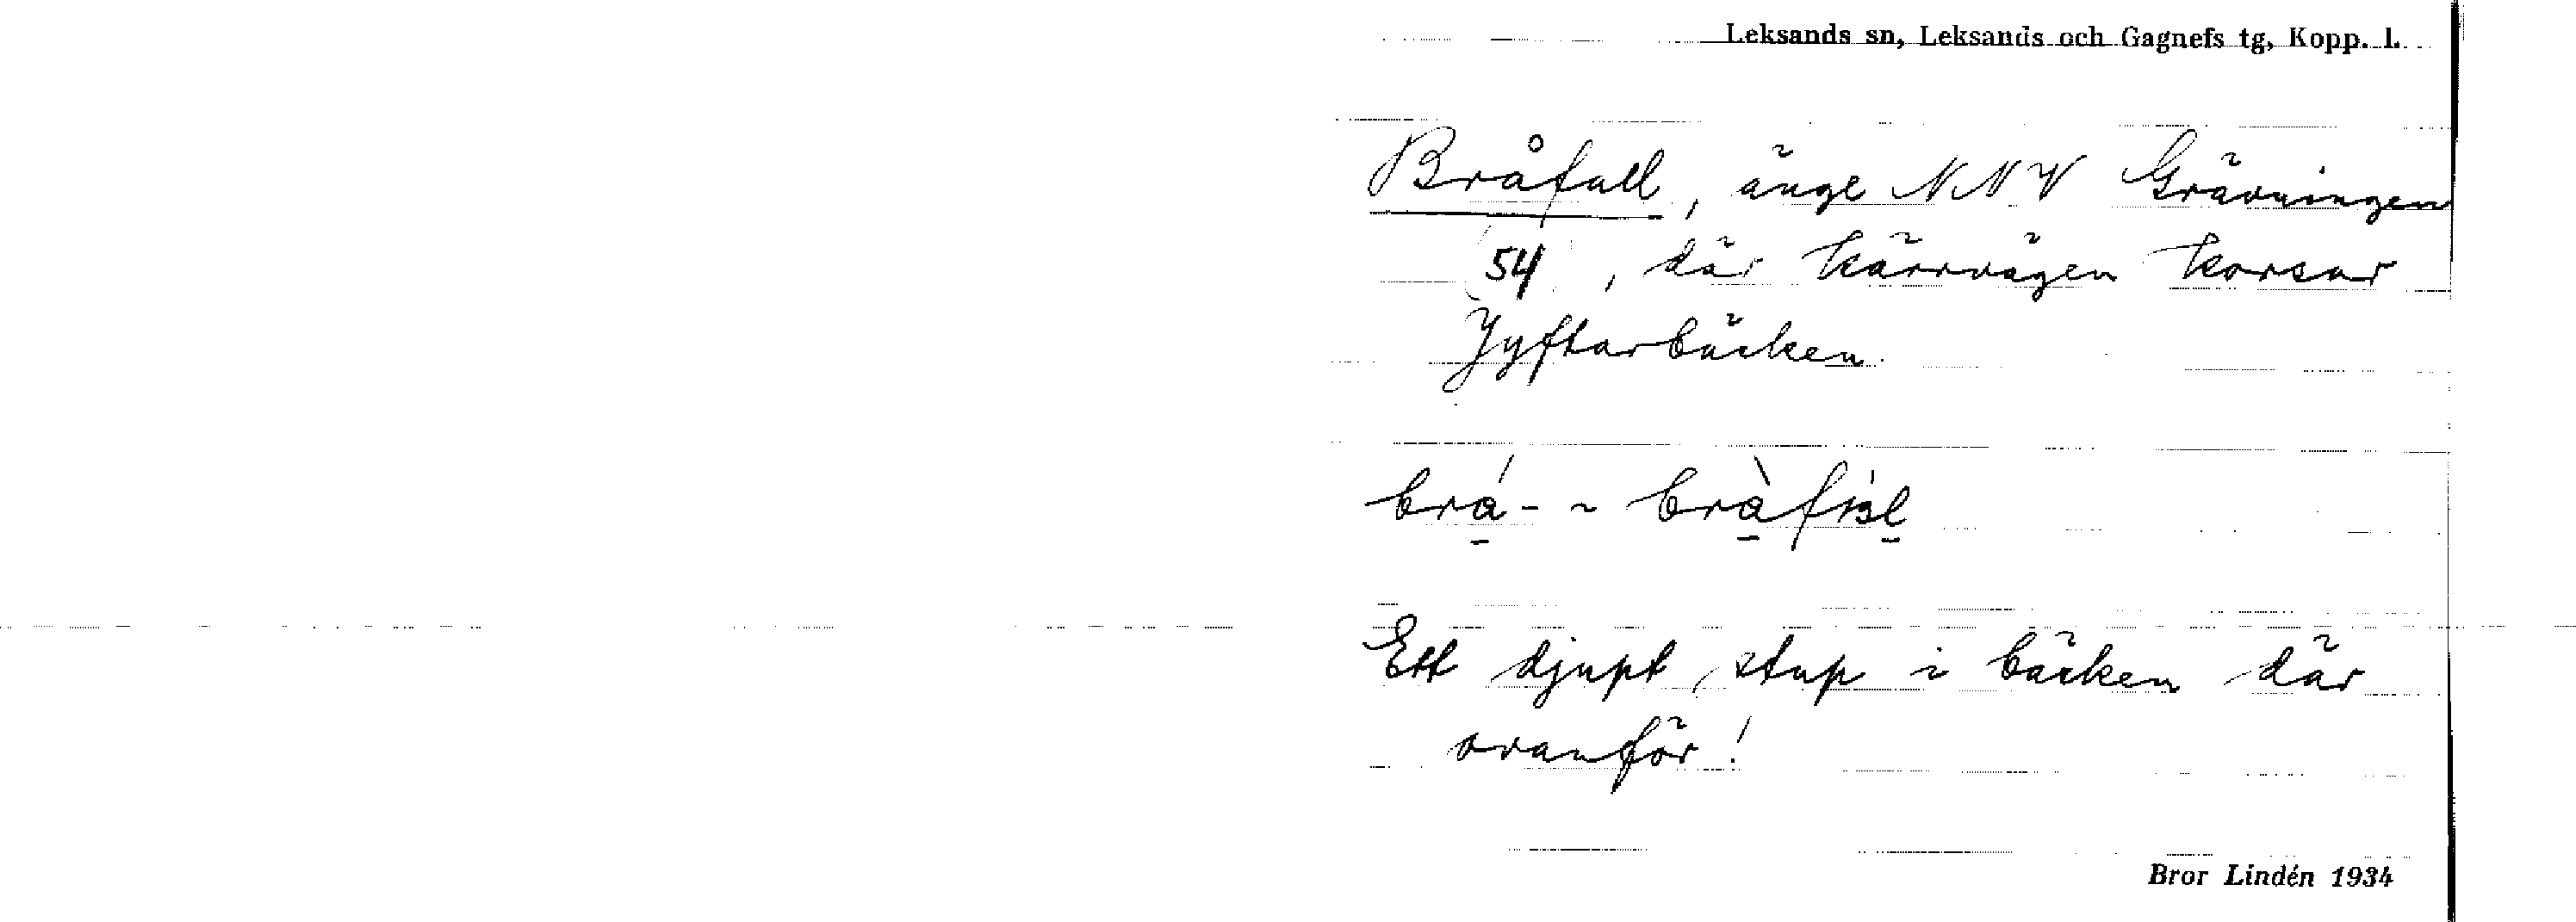 Leksands sn, Leksands och Gagnefs tg, Kopp. l.
Bråfall, änge NNV Grävningen
54, där kärrvägen korsar
Jyftarbäcken.
brá- ~ bràfàl
Ett djupt stup i bäcken där
ovanför!
Bror Lindén 1934